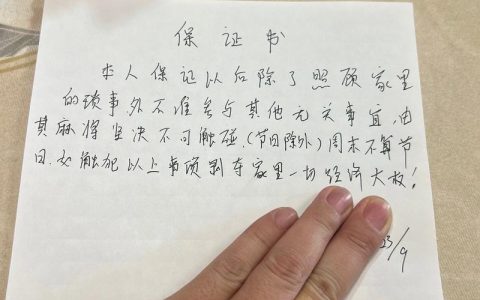 保证书
本人保证以后除了照顾家里
的琐事外不准参与其他无关事宜,由
其麻将坚决不可触碰.(节日除外)周末不算节
日.如触犯以上事项剥夺家里一切经济大权!
23/9